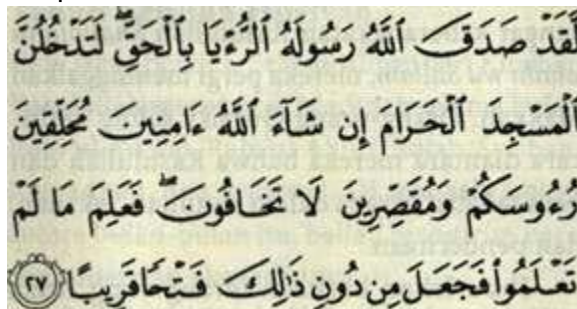 لَّقَدْ صَدَقَ ٱللَّهُ رَسُولَهُ ٱلرُّءْيَا بِٱلْحَقِّ ۖ لَتَدْخُلُنَّ
ٱلْمَسْجِدَ ٱلْحَرَامَ إِن شَآءَ ٱللَّهُ ءَامِنِينَ مُحَلِّقِينَ
رُءُوسَكُمْ وَمُقَصِّرِينَ لَا تَخَافُونَ ۖ فَعَلِمَ مَا لَمْ
تَعْلَمُوا۟ فَجَعَلَ مِن دُونِ ذَٰلِكَ فَتْحًا قَرِيبًا ﴿٢٧﴾